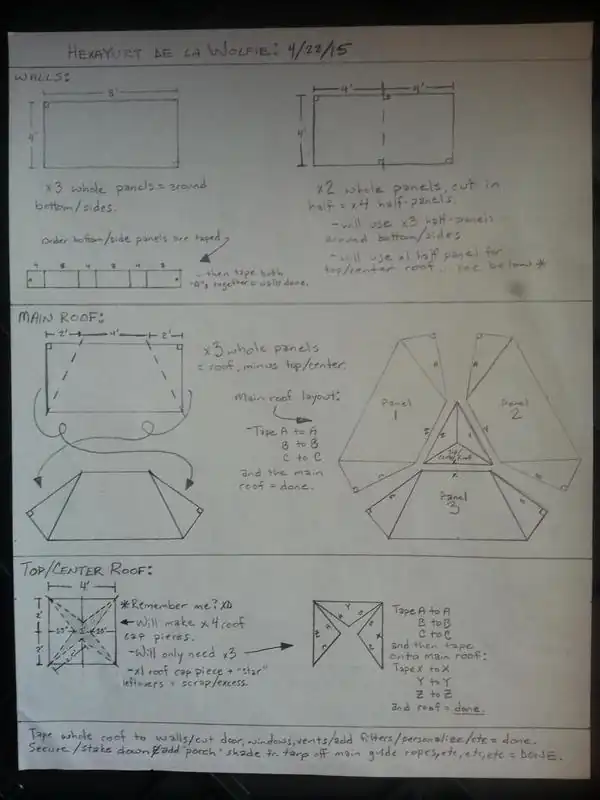 HEXAYURT DE LA WOLFIE: 4/22/15
WALLS:
8'
4'
x3 whole panels = around
bottom/sides.
order bottom/side panels are taped
4 8 4 8 4 8
A A
- then tape both
"A"s together = walls done.
4' 4'
4'
x2 whole panels, cut in
half = x4 half-panels.
- will use x3 half-panels
around bottom/sides
- will use x1 half panel for
top/center roof... see below *
MAIN ROOF:
2' 4' 2'
x3 whole panels
= roof, minus top/center.
Main roof layout:
Tape A to A
B to B
C to C
and the main
roof = done.
Panel
1
Panel
2
Panel
3
TOP/CENTER ROOF:
4'
2'
2'
*Remember me? XD
Will make x4 roof
cap pieces.
- Will only need x3
- x1 roof cap piece + "star"
leftovers = scrap/excess.
Tape A to A
B to B
C to C
and then tape
onto main roof:
Tape X to X
Y to Y
Z to Z
and roof = done.
Tape whole roof to walls/cut door, windows, vents/add filters/personalize/etc = done.
Secure/stake down add "porch" shade tarp off main guide ropes, etc, etc, etc = DONE.